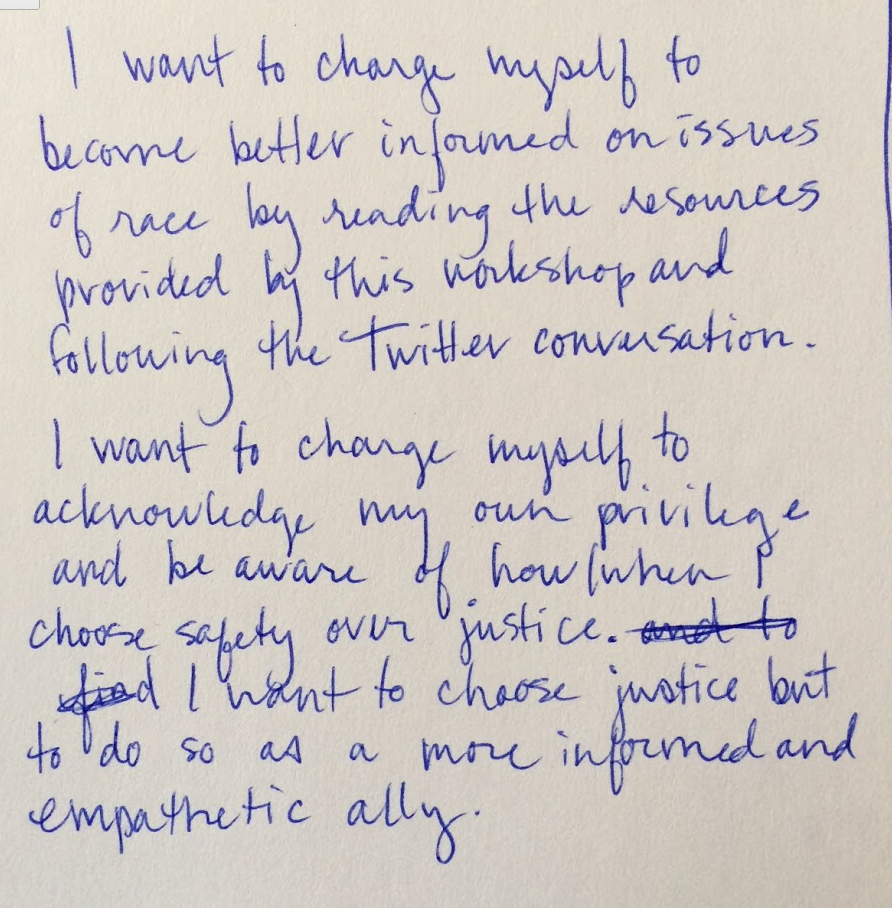 I want to charge myself to
become better informed on issues
of race by reading the resources
provided by this workshop and
following the Twitter conversation.
I want to charge myself to
acknowledge my own privilege
and be aware of how/when I
choose safety over justice. and to
find I want to choose justice but
to do so as a more informed and
empathetic ally.